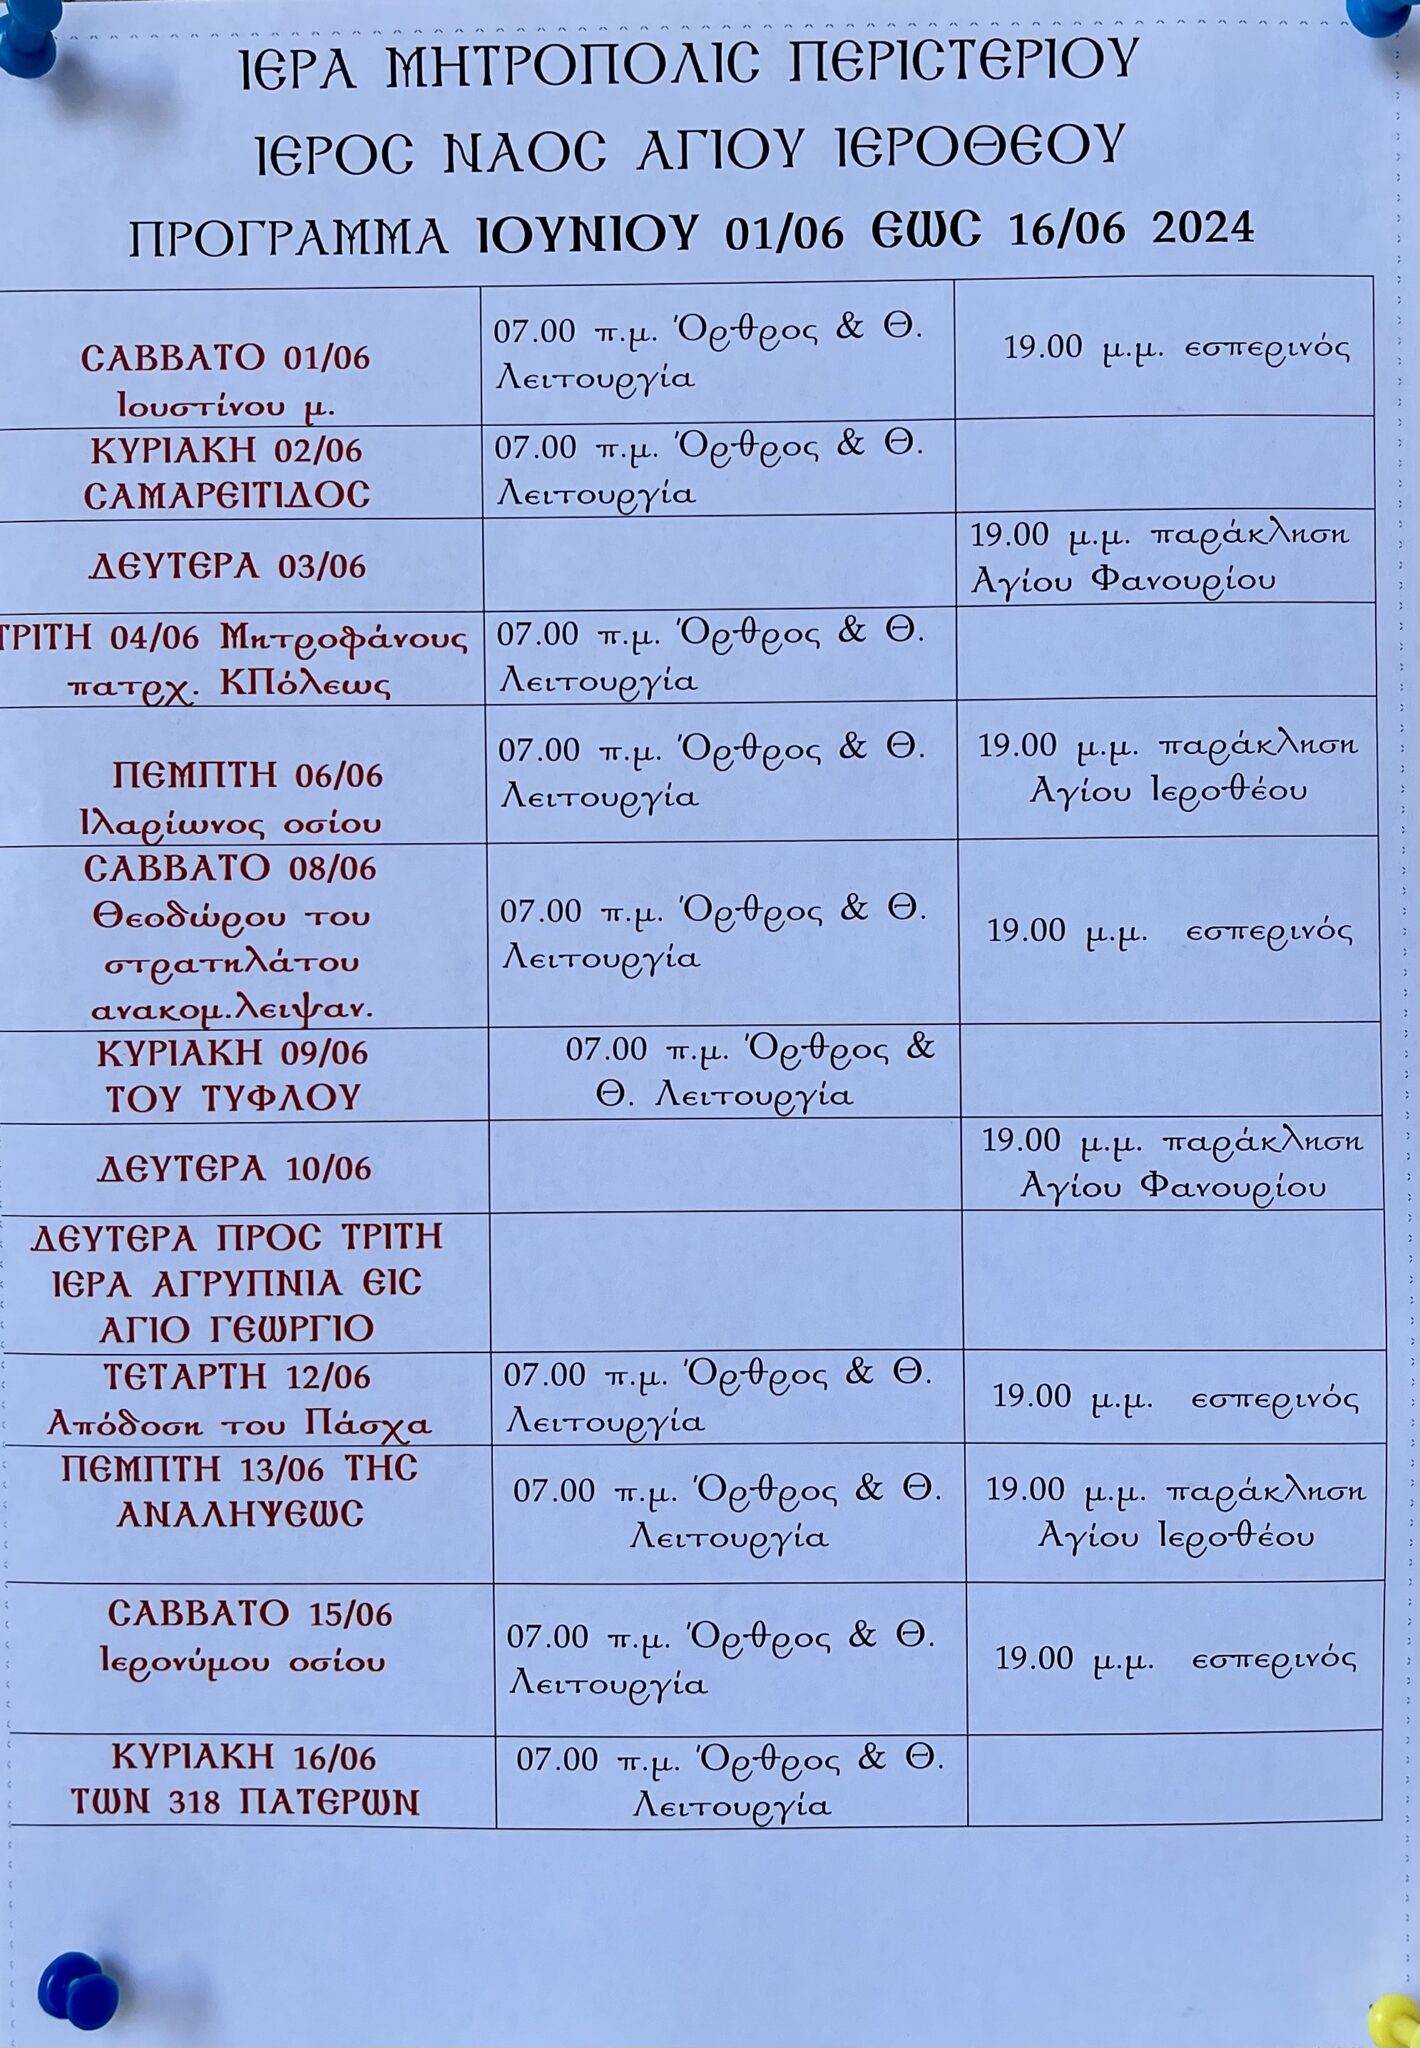 ΙΕΡΑ ΜΗΤΡΟΠΟΛΙΣ ΠΕΡΙΣΤΕΡΙΟΥ
ΙΕΡΟΣ ΝΑΟΣ ΑΓΙΟΥ ΙΕΡΟΘΕΟΥ
ΠΡΟΓΡΑΜΜΑ ΙΟΥΝΙΟΥ 01/06 ΕΩΣ 16/06 2024
ΣΑΒΒΑΤΟ 01/06
Ιουστίνου μ.
07.00 π.μ. Όρθρος & Θ.
Λειτουργία
19.00 μ.μ. εσπερινός
ΚΥΡΙΑΚΗ 02/06
ΣΑΜΑΡΕΙΤΙΔΟΣ
07.00 π.μ. Όρθρος & Θ.
Λειτουργία
ΔΕΥΤΕΡΑ 03/06
19.00 μ.μ. παράκληση
Αγίου Φανουρίου
ΤΡΙΤΗ 04/06 Μητροφάνους
πατρχ. ΚΠόλεως
07.00 π.μ. Όρθρος & Θ.
Λειτουργία
ΠΕΜΠΤΗ 06/06
Ιλαρίωνος οσίου
07.00 π.μ. Όρθρος & Θ.
Λειτουργία
19.00 μ.μ. παράκληση
Αγίου Ιεροθέου
ΣΑΒΒΑΤΟ 08/06
Θεοδώρου του
στρατηλάτου
ανακομ.λειψαν.
07.00 π.μ. Όρθρος & Θ.
Λειτουργία
19.00 μ.μ. εσπερινός
ΚΥΡΙΑΚΗ 09/06
ΤΟΥ ΤΥΦΛΟΥ
07.00 π.μ. Όρθρος &
Θ. Λειτουργία
ΔΕΥΤΕΡΑ 10/06
19.00 μ.μ. παράκληση
Αγίου Φανουρίου
ΔΕΥΤΕΡΑ ΠΡΟΣ ΤΡΙΤΗ
ΙΕΡΑ ΑΓΡΥΠΝΙΑ ΕΙΣ
ΑΓΙΟ ΓΕΩΡΓΙΟ
ΤΕΤΑΡΤΗ 12/06
Απόδοση του Πάσχα
07.00 π.μ. Όρθρος & Θ.
Λειτουργία
19.00 μ.μ. εσπερινός
ΠΕΜΠΤΗ 13/06 ΤΗΣ
ΑΝΑΛΗΨΕΩΣ
07.00 π.μ. Όρθρος & Θ.
Λειτουργία
19.00 μ.μ. παράκληση
Αγίου Ιεροθέου
ΣΑΒΒΑΤΟ 15/06
Ιερονύμου οσίου
07.00 π.μ. Όρθρος & Θ.
Λειτουργία
19.00 μ.μ. εσπερινός
ΚΥΡΙΑΚΗ 16/06
ΤΩΝ 318 ΠΑΤΕΡΩΝ
07.00 π.μ. Όρθρος & Θ.
Λειτουργία